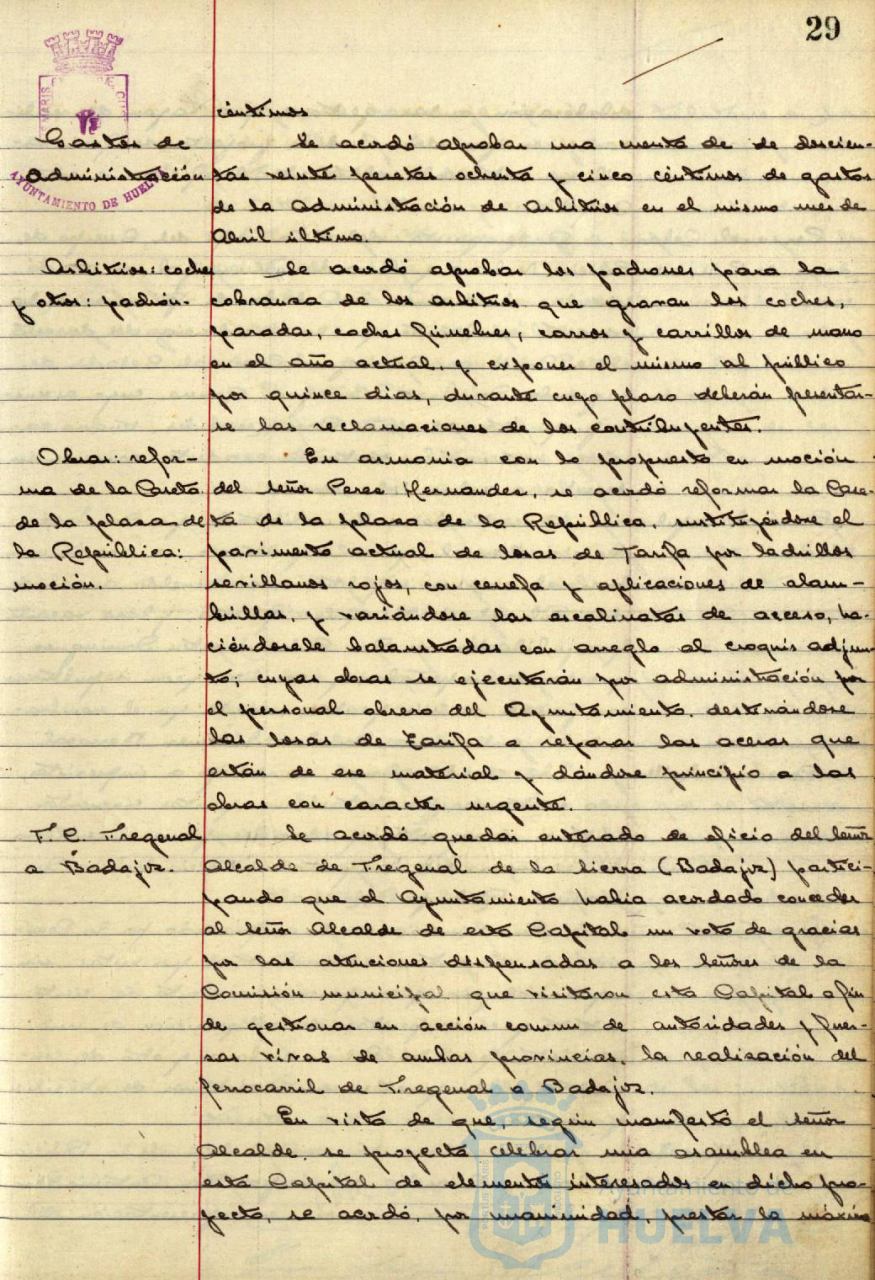 29
céntimos
Gastos de
Administración
Se acordó aprobar una cuenta de de doscien-
tas veinte pesetas ochenta y cinco céntimos de gastos
de la Administración de Arbitrios en el mismo mes de
Abril último.
Arbitrios: coches
y otros: padrón.
Se acordó aprobar los padrones para la
cobranza de los arbitrios que gravan los coches,
paradas, coches fúnebres, carros y carrillos de mano
en el año actual, y exponer el mismo al público
por quince dias, durante cuyo plaso deberán presentar-
se las reclamaciones de los contribuyentes.
Obras: refor-
ma de la Caseta
de la plasa de
la República:
moción.
En armonia con lo propuesto en moción
del señor Peres Hernandes, se acordó reformar la Case-
ta de la plasa de la República, sustituyéndose el
pavimento actual de losas de Tarifa por ladrillos
sevillanos rojos, con cenefa y aplicaciones de alam-
brillas, y variándose las escalinatas de acceso, ha-
ciéndosele balaustradas con arreglo al croquis adjun-
to; cuyas obras se ejecutarán por administración por
el personal obrero del Ayuntamiento, destinándose
las losas de Tarifa a reparar las aceras que
están de ese material y dándose principio a las
obras con caracter urgente.
F. C. Fregenal
a Badajoz.
Se acordó quedar enterado de oficio del señor
Alcalde de Fregenal de la Sierra (Badajoz) partici-
pando que el Ayuntamiento habia acordado conceder
al señor Alcalde de esta Capital un voto de gracias
por las atenciones dispensadas a los señores de la
Comisión municipal que visitaron esta Capital a fin
de gestionar en acción comun de autoridades y fuer-
sas vivas de ambas provincias, la realisación del
ferrocarril de Fregenal a Badajoz.
En vista de que, según manifestó el señor
Alcalde, se proyecta celebrar una asamblea en
esta Capital de elementos interesados en dicho pro-
yecto, se acordó, por unanimidad, prestar la máxima
AYUNTAMIENTO DE HUELVA
Ayuntamiento de
HUELVA